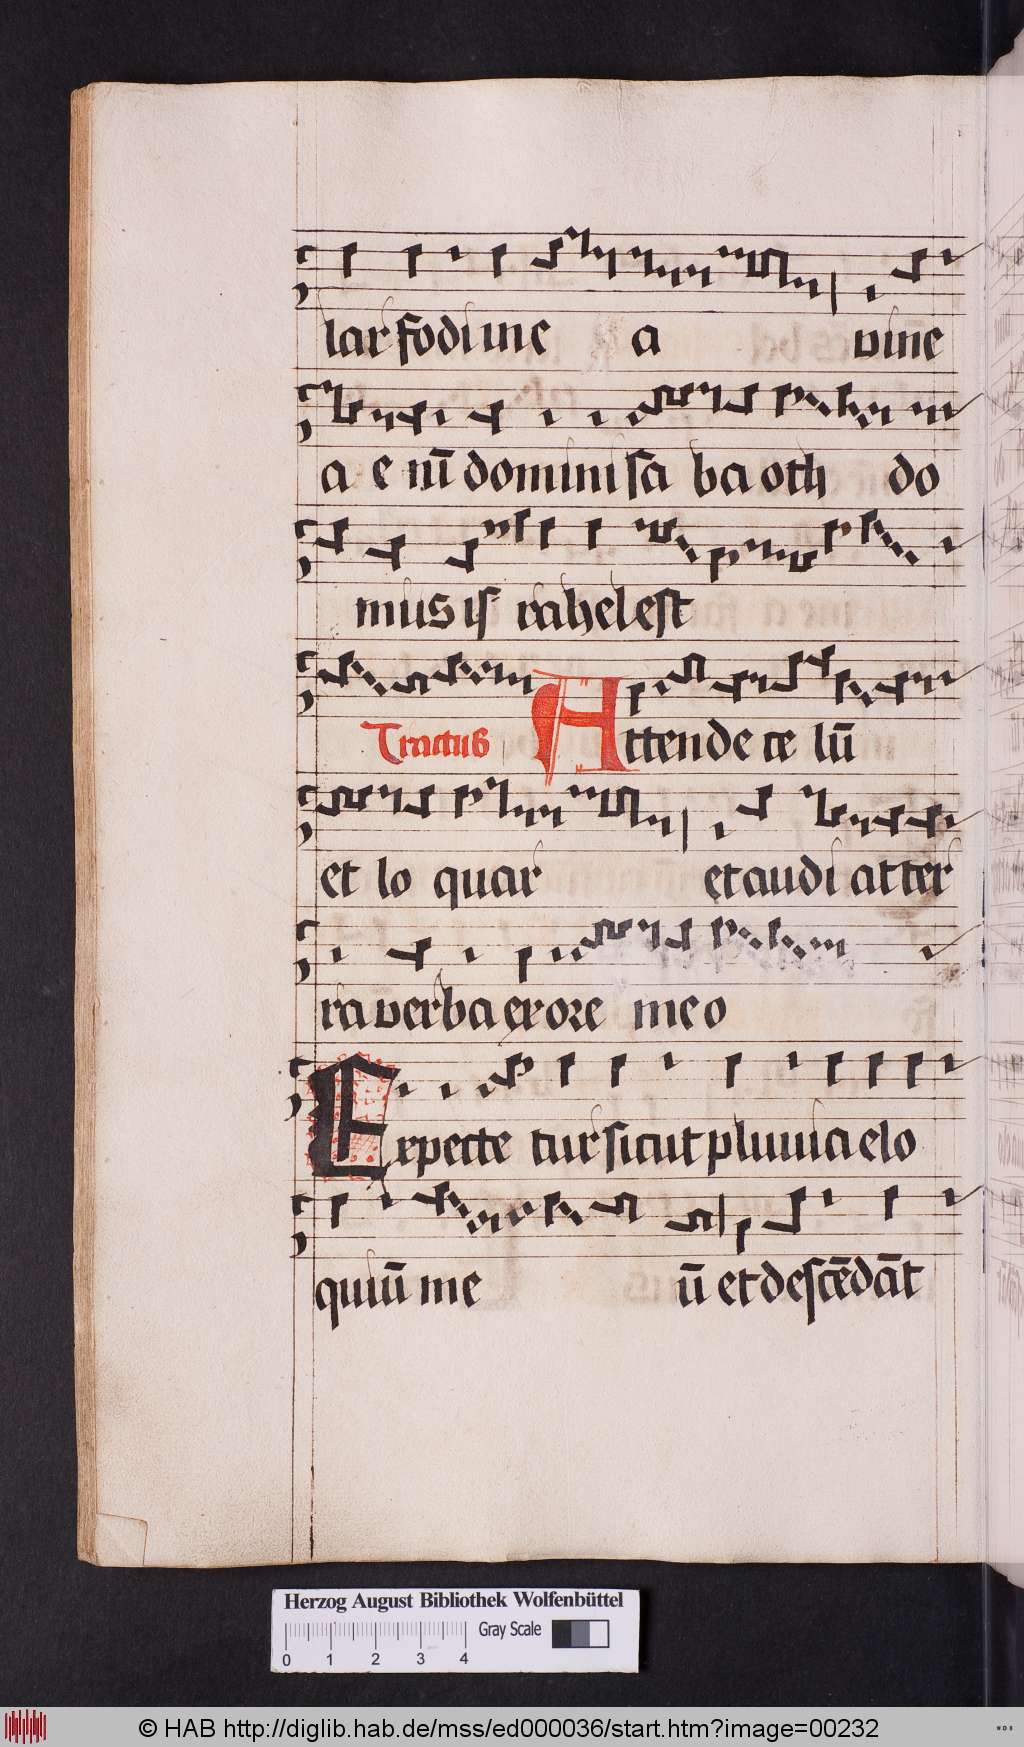 lar fodi ıne a vine
a e nī domini sa ba oth do
mus is rahel est
Tractus Attende ce lū
et lo quar et audi at ter
ra verba ex ore me o
Expecte tur sicut pluuia elo
quiū me ū et descēdāt
Herzog August Bibliothek Wolfenbüttel
Gray Scale
0 1 2 3 4
© HAB http://diglib.hab.de/mss/ed000036/start.htm?image=00232